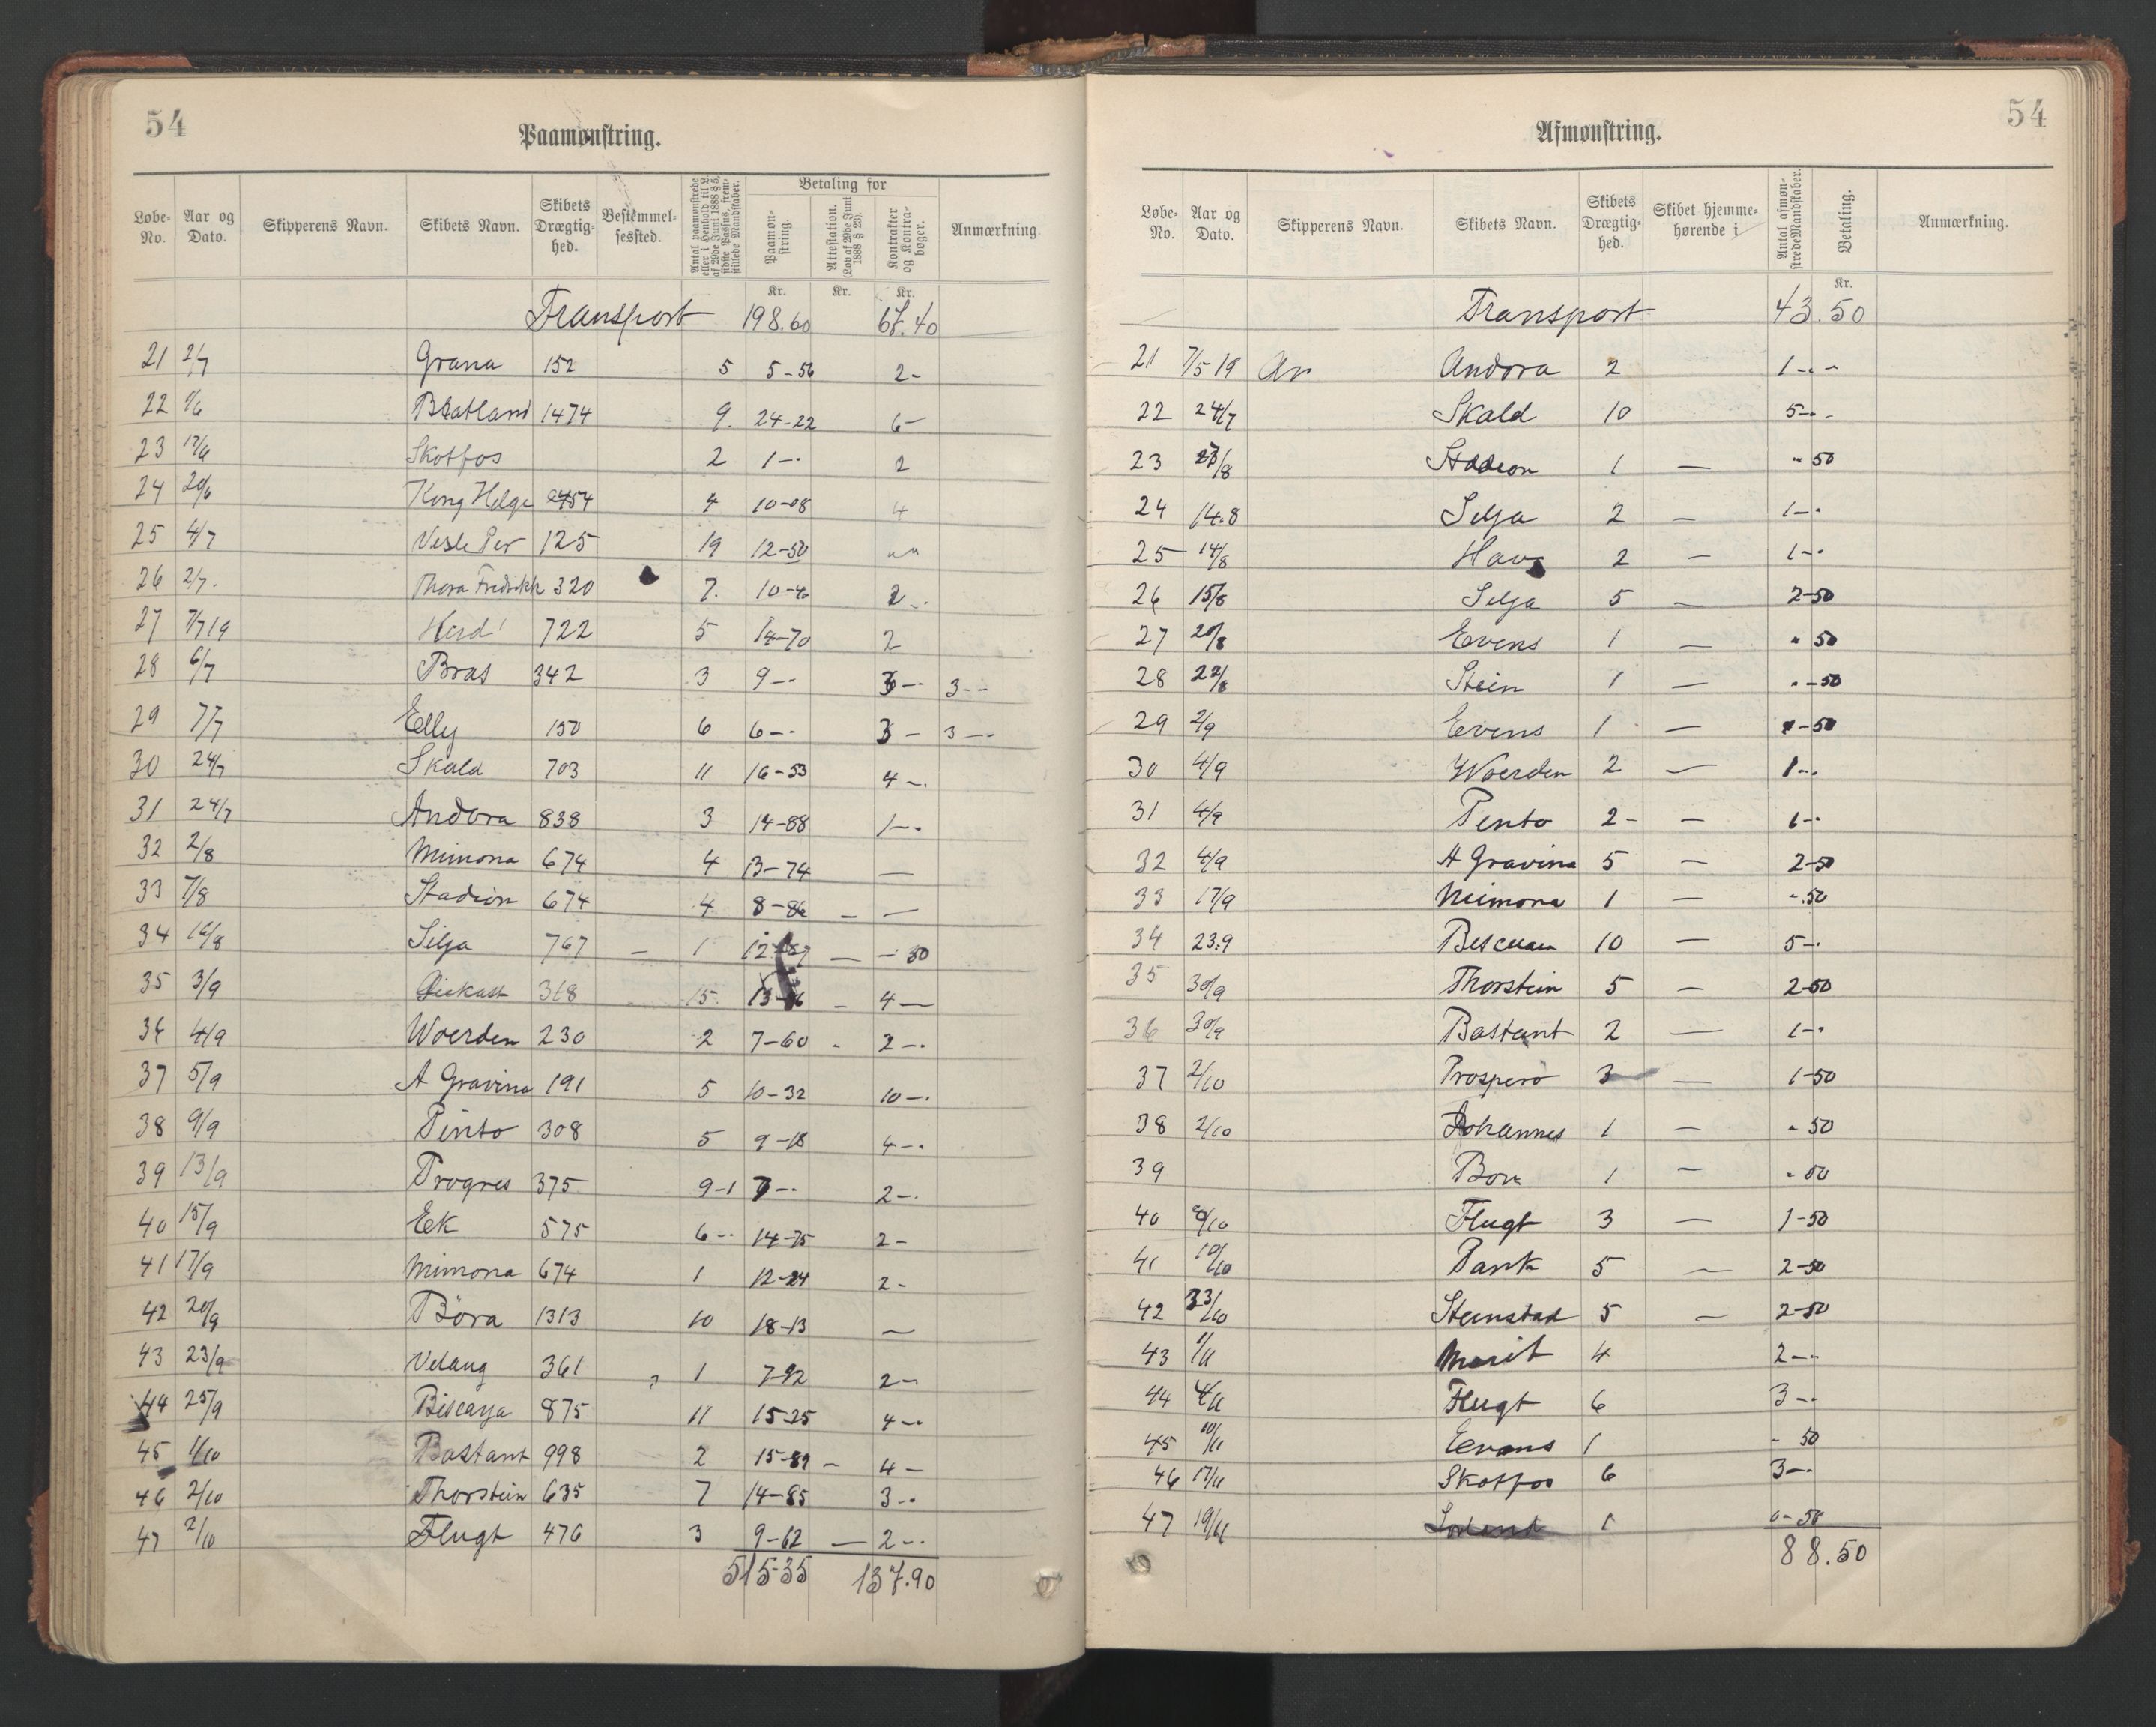 54
Paamønstring.
Løbe-No. Aar og Dato. Skipperens Navn. Skibets Navn. Skibets Drægtighed. Bestemmelsessted. Antal paamønstrede eller i Henhold til L. af 29de Juni 1888 § 5, sidste Passus, fremstillede Mandskaber. Betaling for Paamønstring. Attestation. (Lov af 29de Juni 1888 § 23). Kontrakter og Kontrabøger. Anmærkning.
Kr. Kr. Kr.
Transport 198.60 67.40
21 2/7 Grana 152 5 5-56 2-
22 Bratland 1474 9. 24-22 6-
23 17/6 Skotfos 2 1-- 2
24 20/6 Kong Helge 2454 4 10-08 4
25 4/7 Vesle Per 125 19 12-50 " "
26 2/7. Thora Fredrikk 320 7. 10-40 2--
27 7/7 19 722 5 14-70 2
28 6/7 Bras 342 3 9-- 3-- 3--
29 7/7 Eelly 150 6 6-- 3- 3--
30 24/7 Skald 703 11 16-53 4-.
31 24/7 Andora 838 3 14-88 1-.
32 2/8 Mimona 674 4 13-74 —
33 7/8 Stadion 674 4 8-86 — —
34 16/8 Silja 767 — 1 — -50
35 3/9 368 15 — 4—
36 4/9 Woerden 230 2 7-60 - 2-.
37 5/9 A Gravina 191 5 10-32 10-.
38 9/9 Pinto 308 5 9-18 4-.
39 13/9 Progres 375 9-1 7-- 2-.
40 15/9 Eek 575 6-- 14-75 2-
41 17/9 Mimona 674 1 12-24 2-
42 20/9 Böra 1313 10 18-13 —
43 23/9 Velaug 361 1 7-92 2-
44 25/9 Biscaya 875 11 15-25 4-.
45 1/10 Bastant 998 2 15-89 - 4-
46 2/10 Thorstein 635 7 14-85 3-.
47 2/10 Flugt 476 3 9-62 — 2-.
515-35 137.90
54
Afmønstring.
Løbe-No. Aar og Dato. Skipperens Navn. Skibets Navn. Skibets Drægtighed. Skibet hjemmehørende i Antal afmønstrede Mandskaber. Betaling. Anmærkning.
Kr.
Transport 43.50
21 7/5-19 An Andora 2 1--
22 24/7 Skald 10 5--
23 Stadion 1 — " 50
24 14.8 Silja 2 — 1-.
25 14/8 Hav 2 — 1-.
26 15/8 Silja 5 — 2-50
27 20/8 Evens 1 — " 50
28 22/8 Stein 1 — "-50
29 2/9 Evens 1 — "-50
30 4/9 Woerden 2 — 1-.
31 4/9 Pento 2- — 1-.
32 4/9 A Gravina 5 — 2-50
33 17/9 Mimona 1 — -.50
34 23.9 10 — 5-.
35 30/9 Thorstein 5 — 2-50
36 30/9 Bastant 2 — 1-.
37 2/10 Prospero 3 — 1-50
38 2/10 Johannes 1 — - 50
39 Bor 1 — - 50
40 Flugt 3 — 1-50
41 10/10 Pank 5 — 2-50
42 23/10 Steinstad 5 — 2-50
43 1/11 Marit 4 2--
44 4/11 Flugt 6 3--
45 10/11 Eevans 1 - 50
46 17/11 Skotfos 6 3-.
47 19/11 1 0-50
88.50